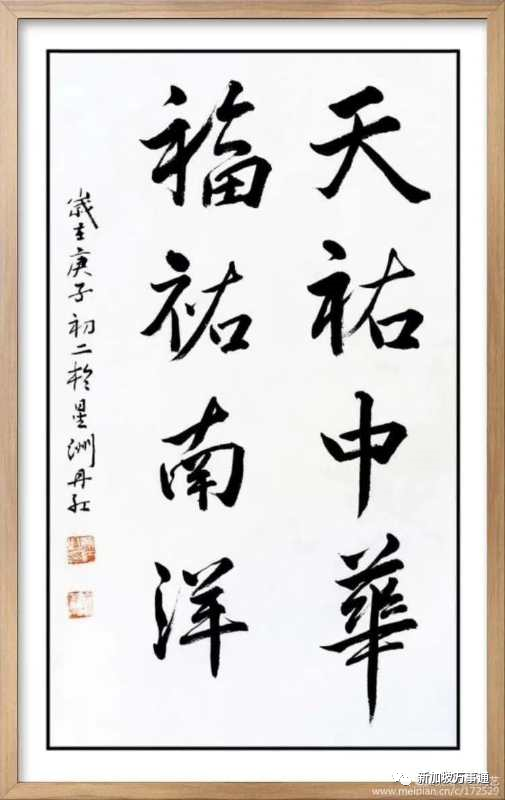 天祐中華
福祐南洋
歲在庚子初二於星洲丹紅
新加坡万事通
www.meipian.cn/c/172529
艺